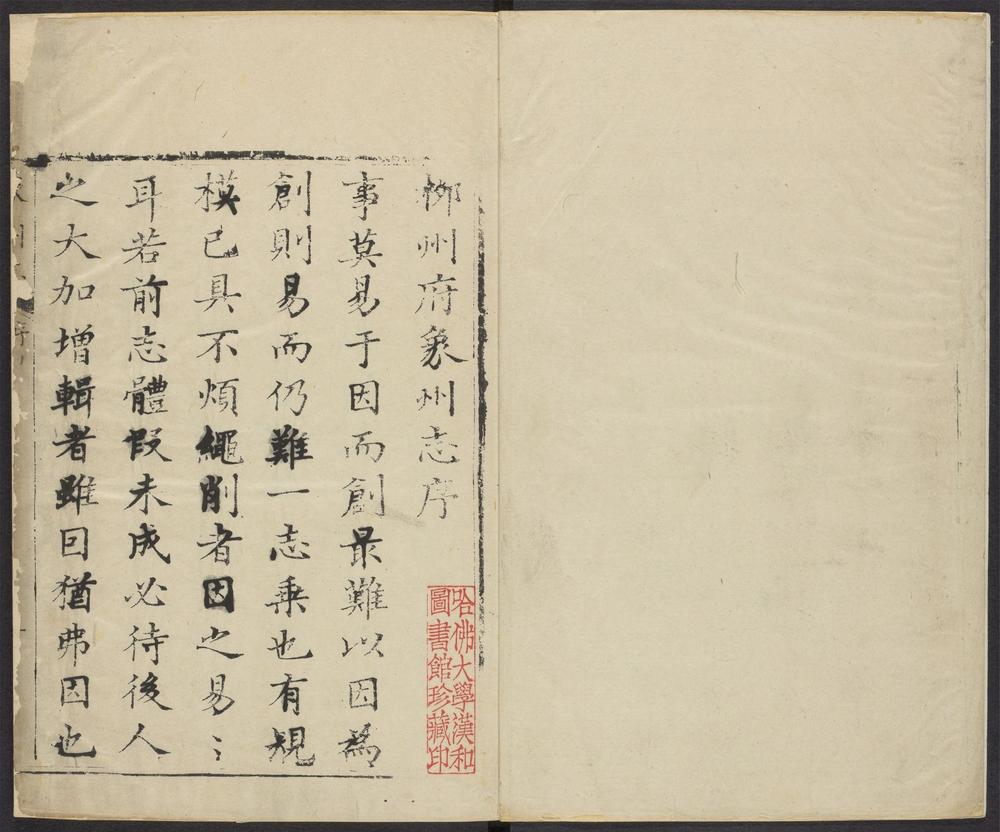 柳州府象州志序
事莫易于因而創最難以因為
創則易而仍難一志乗也有規
模已具不煩繩削者因之易〻
耳若前志體段未成必待後人
之大加增輯者雖因猶弗因也
哈佛大學漢和
圖書館珍藏印